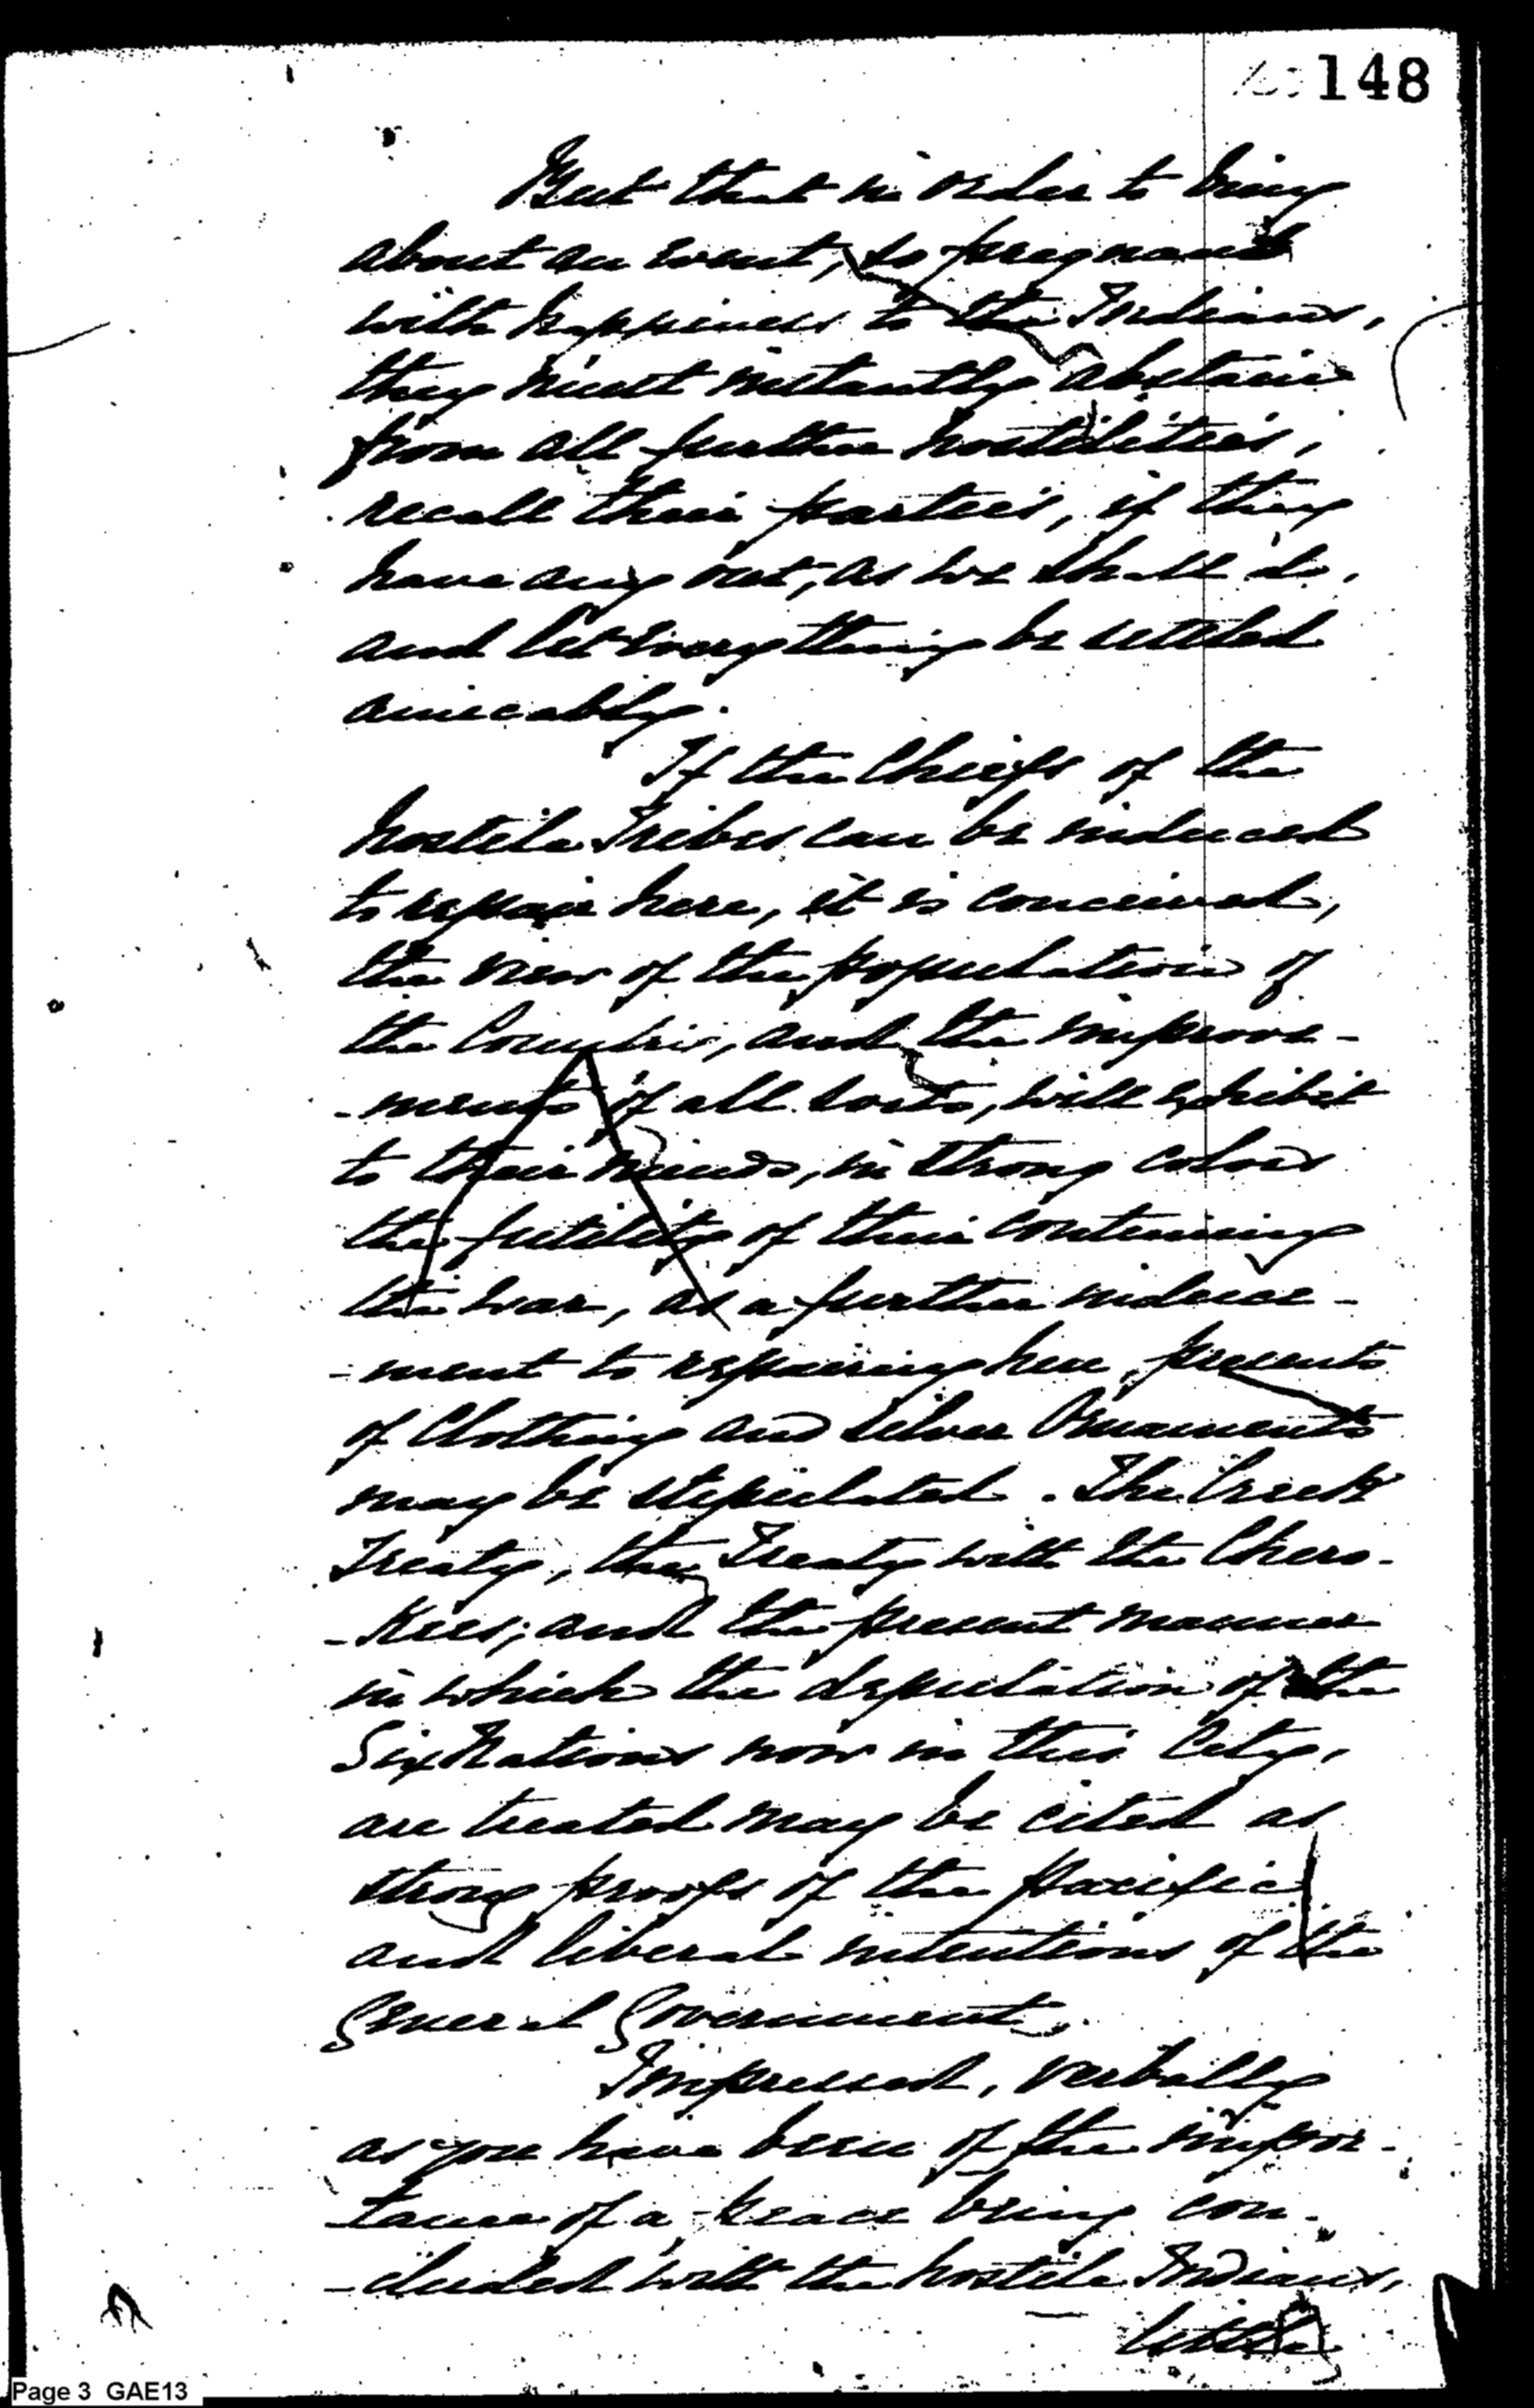 148
But that in order to bring
about an event, so pregnant
with happiness to the Indians,
they must instantly abstain
from all further hostilities,
recall their parties, if they
have any out, as we shall do,
and let everything be settled
amicably.
If the Chiefs of the
hostile Tribes can be induced
to repair here, it is conceived,
the view of the population of
the Country, and the improve-
-ments of all sorts, will exhibit
to their minds, in strong colors
the futility of their continuing
the war, as a further induce-
-ment to repairing here, presents
of Clothing and Silver Ornaments
may be stipulated. The Creek
Treaty, the Treaty with the Chero-
-kees; and the present manner
in which the deputation of the
Six Nations now in this City,
are treated may be cited as
strong proofs of the pacific
and liberal intentions of the
General Government.
Impressed, verbally
as you have been of the impor-
-tance of a peace being con-
-cluded with the hostile Indians,
little
Page 3 GAE13